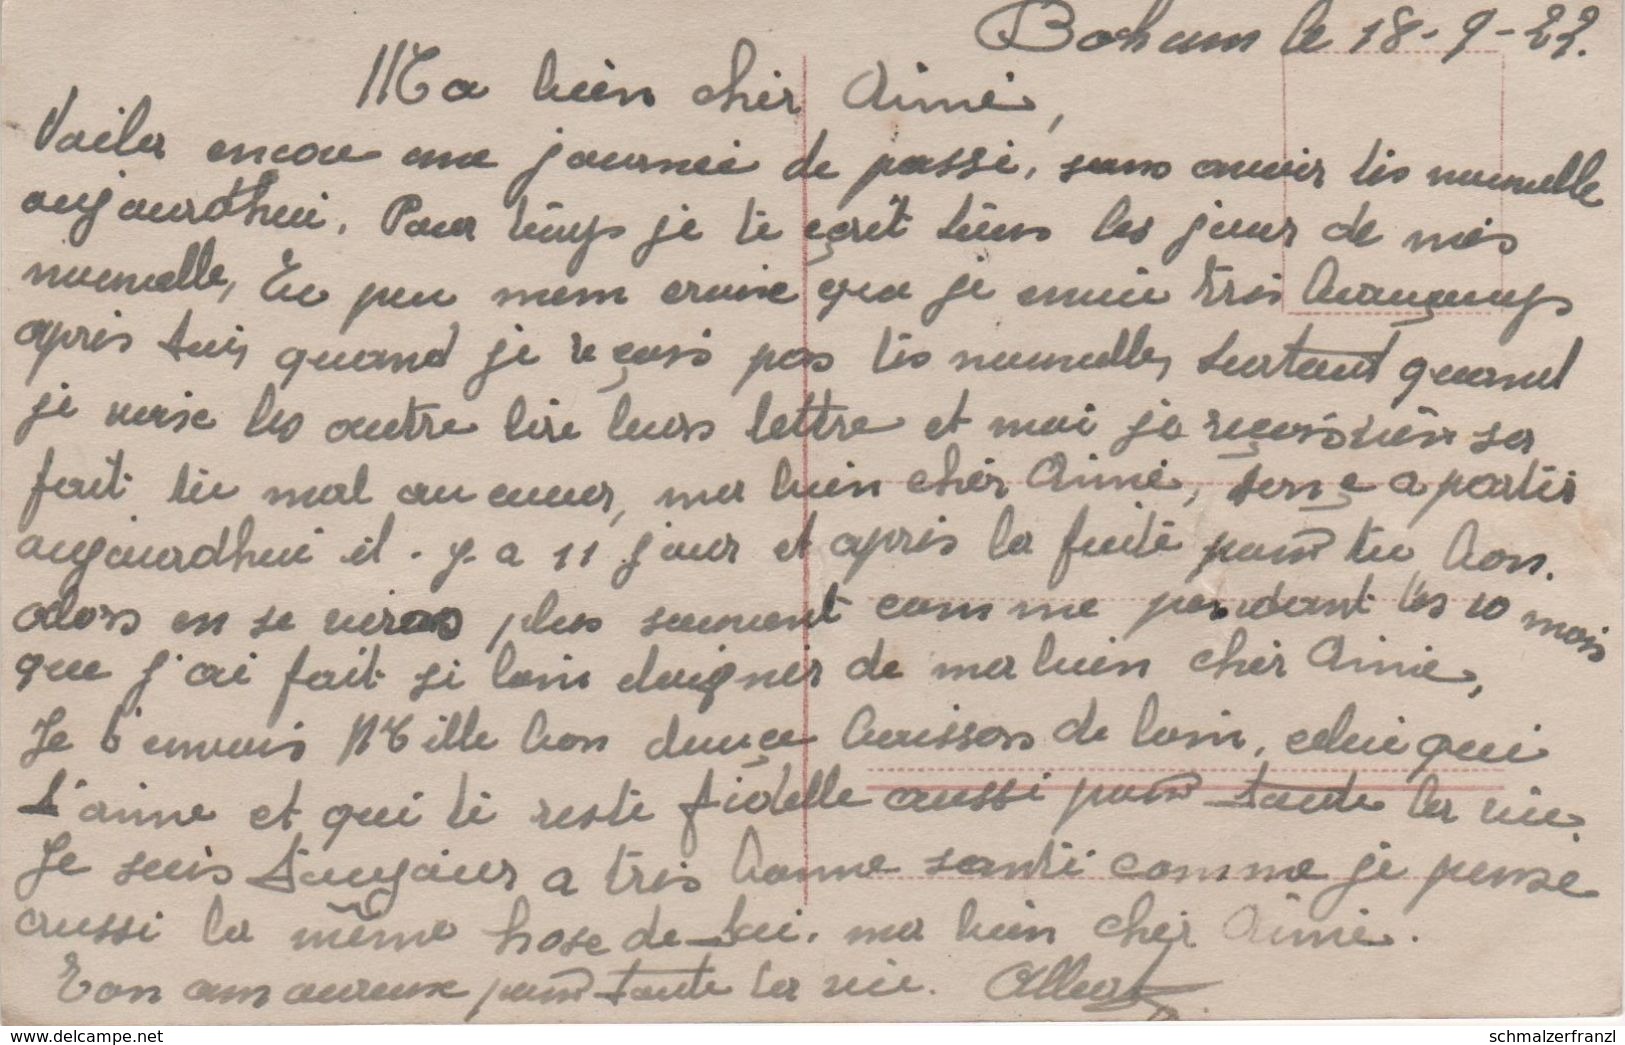 Bohum le 18-9-22.
Ma bien cher Aimé,
Voila encore une journeé de passé, sans avoir tes nouvelle
aujourdhui. Pour temps je te ecrit tous les jour de mes
nouvelle, tu peu mem croire que je ennui tres beaucoup
apres toi, quand je reçois pas tes nouvelle, surtout quand
je voise les autre lire leurs lettre et moi je reçois rien sa
fait tu mal au cœur, ma bien cher Aimé, sen ç a partir
aujourdhui il. y a 11 jour et apres la fuite pour tu bon.
alors on se viras plus souvent comme pendant les 10 mois
que j'ai fait si loin eloigner de ma bien cher Aimé,
Je t'envois Mille bon douçe baisson de loin, celui qui
t'aime et qui te reste fidelle aussi pour toute la vie.
Je suis toujour a tres bonne santé comme je pense
aussi la même hose de toi. ma bien cher Aimé.
Ton amoureuse pour toute la vie. Albert
www.delcampe.net
schmalzerfranzl